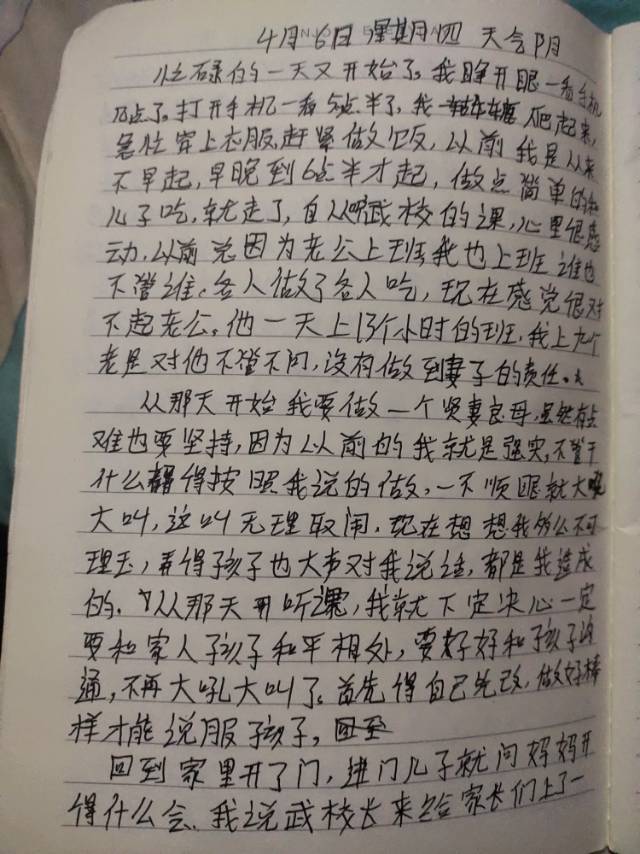 4月6日 星期四 天气阴
忙碌的一天又开始了。我睁开眼一看手机
几点了。打开手机一看5点半了,我 爬起来,
急忙穿上衣服,赶紧做饭,以前我是从来
不早起,早晚到6点半才起,做点简单的给
儿子吃,就走了,自从听武校的课,心里很感
动,以前总因为老公上班我也上班谁也
不管谁,各人做了各人吃,现在感觉很对
不起老公。他一天上13个小时的班,我上九个
老是对他不管不问,没有做到妻子的责任。
从那天开始我要做一个贤妻良母,虽然有点
难也要坚持,因为以前的我就是强势,不管干
什么都得按照我说的做,一不顺眼就大喊
大叫,这叫无理取闹,现在想想我的么不可
理玉,弄得孩子也大声对我说话,都是我造成
的。从那天开听课,我就下定决心一定
要和家人孩子和平相处,要好好和孩子沟
通,不再大吼大叫了。首先得自己先改,做好榜
样才能说服孩子,
回到家里开了门,进门儿子就问妈妈开
得什么会、我说武校长来给家长们上了一